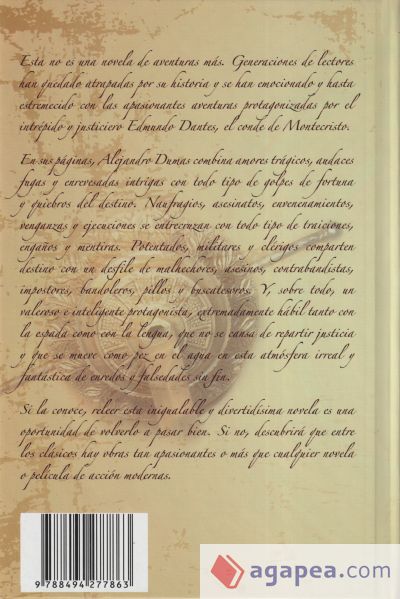 Está no es una novela de aventuras más. Generaciones de lectores
han quedado atrapadas por su historia y se han emocionado y hasta
estremecido con las apasionantes aventuras protagonizadas por el
intrépido y justiciero Edmundo Dantes, el conde de Montecristo.
En sus páginas, Alejandro Dumas combina amores trágicos, audaces
fugas y enrevesadas intrigas con todo tipo de golpes de fortuna
y quiebros del destino. Naufragios, asesinatos, envenenamientos,
venganzas y ejecuciones se entrecruzan con todo tipo de traiciones,
engaños y mentiras. Potentados, militares y clérigos comparten
destino con un desfile de malhechores, asesinos, contrabandistas,
impostores, bandoleros, pillos y buscatesoros. Y, sobre todo, un
valeroso e inteligente protagonista, extremadamente hábil tanto con
la espada como con la lengua, que no se cansa de repartir justicia
y que se mueve como pez en el agua en esta atmósfera irreal y
fantástica de enredos y falsedades sin fin.
Si la conoce, releer esta inigualable y divertidísima novela es una
oportunidad de volverlo a pasar bien. Si no, descubrirá que entre
los clásicos hay obras tan apasionantes o más que cualquier novela
o película de acción modernas.
9 788494 277863
agapea.com